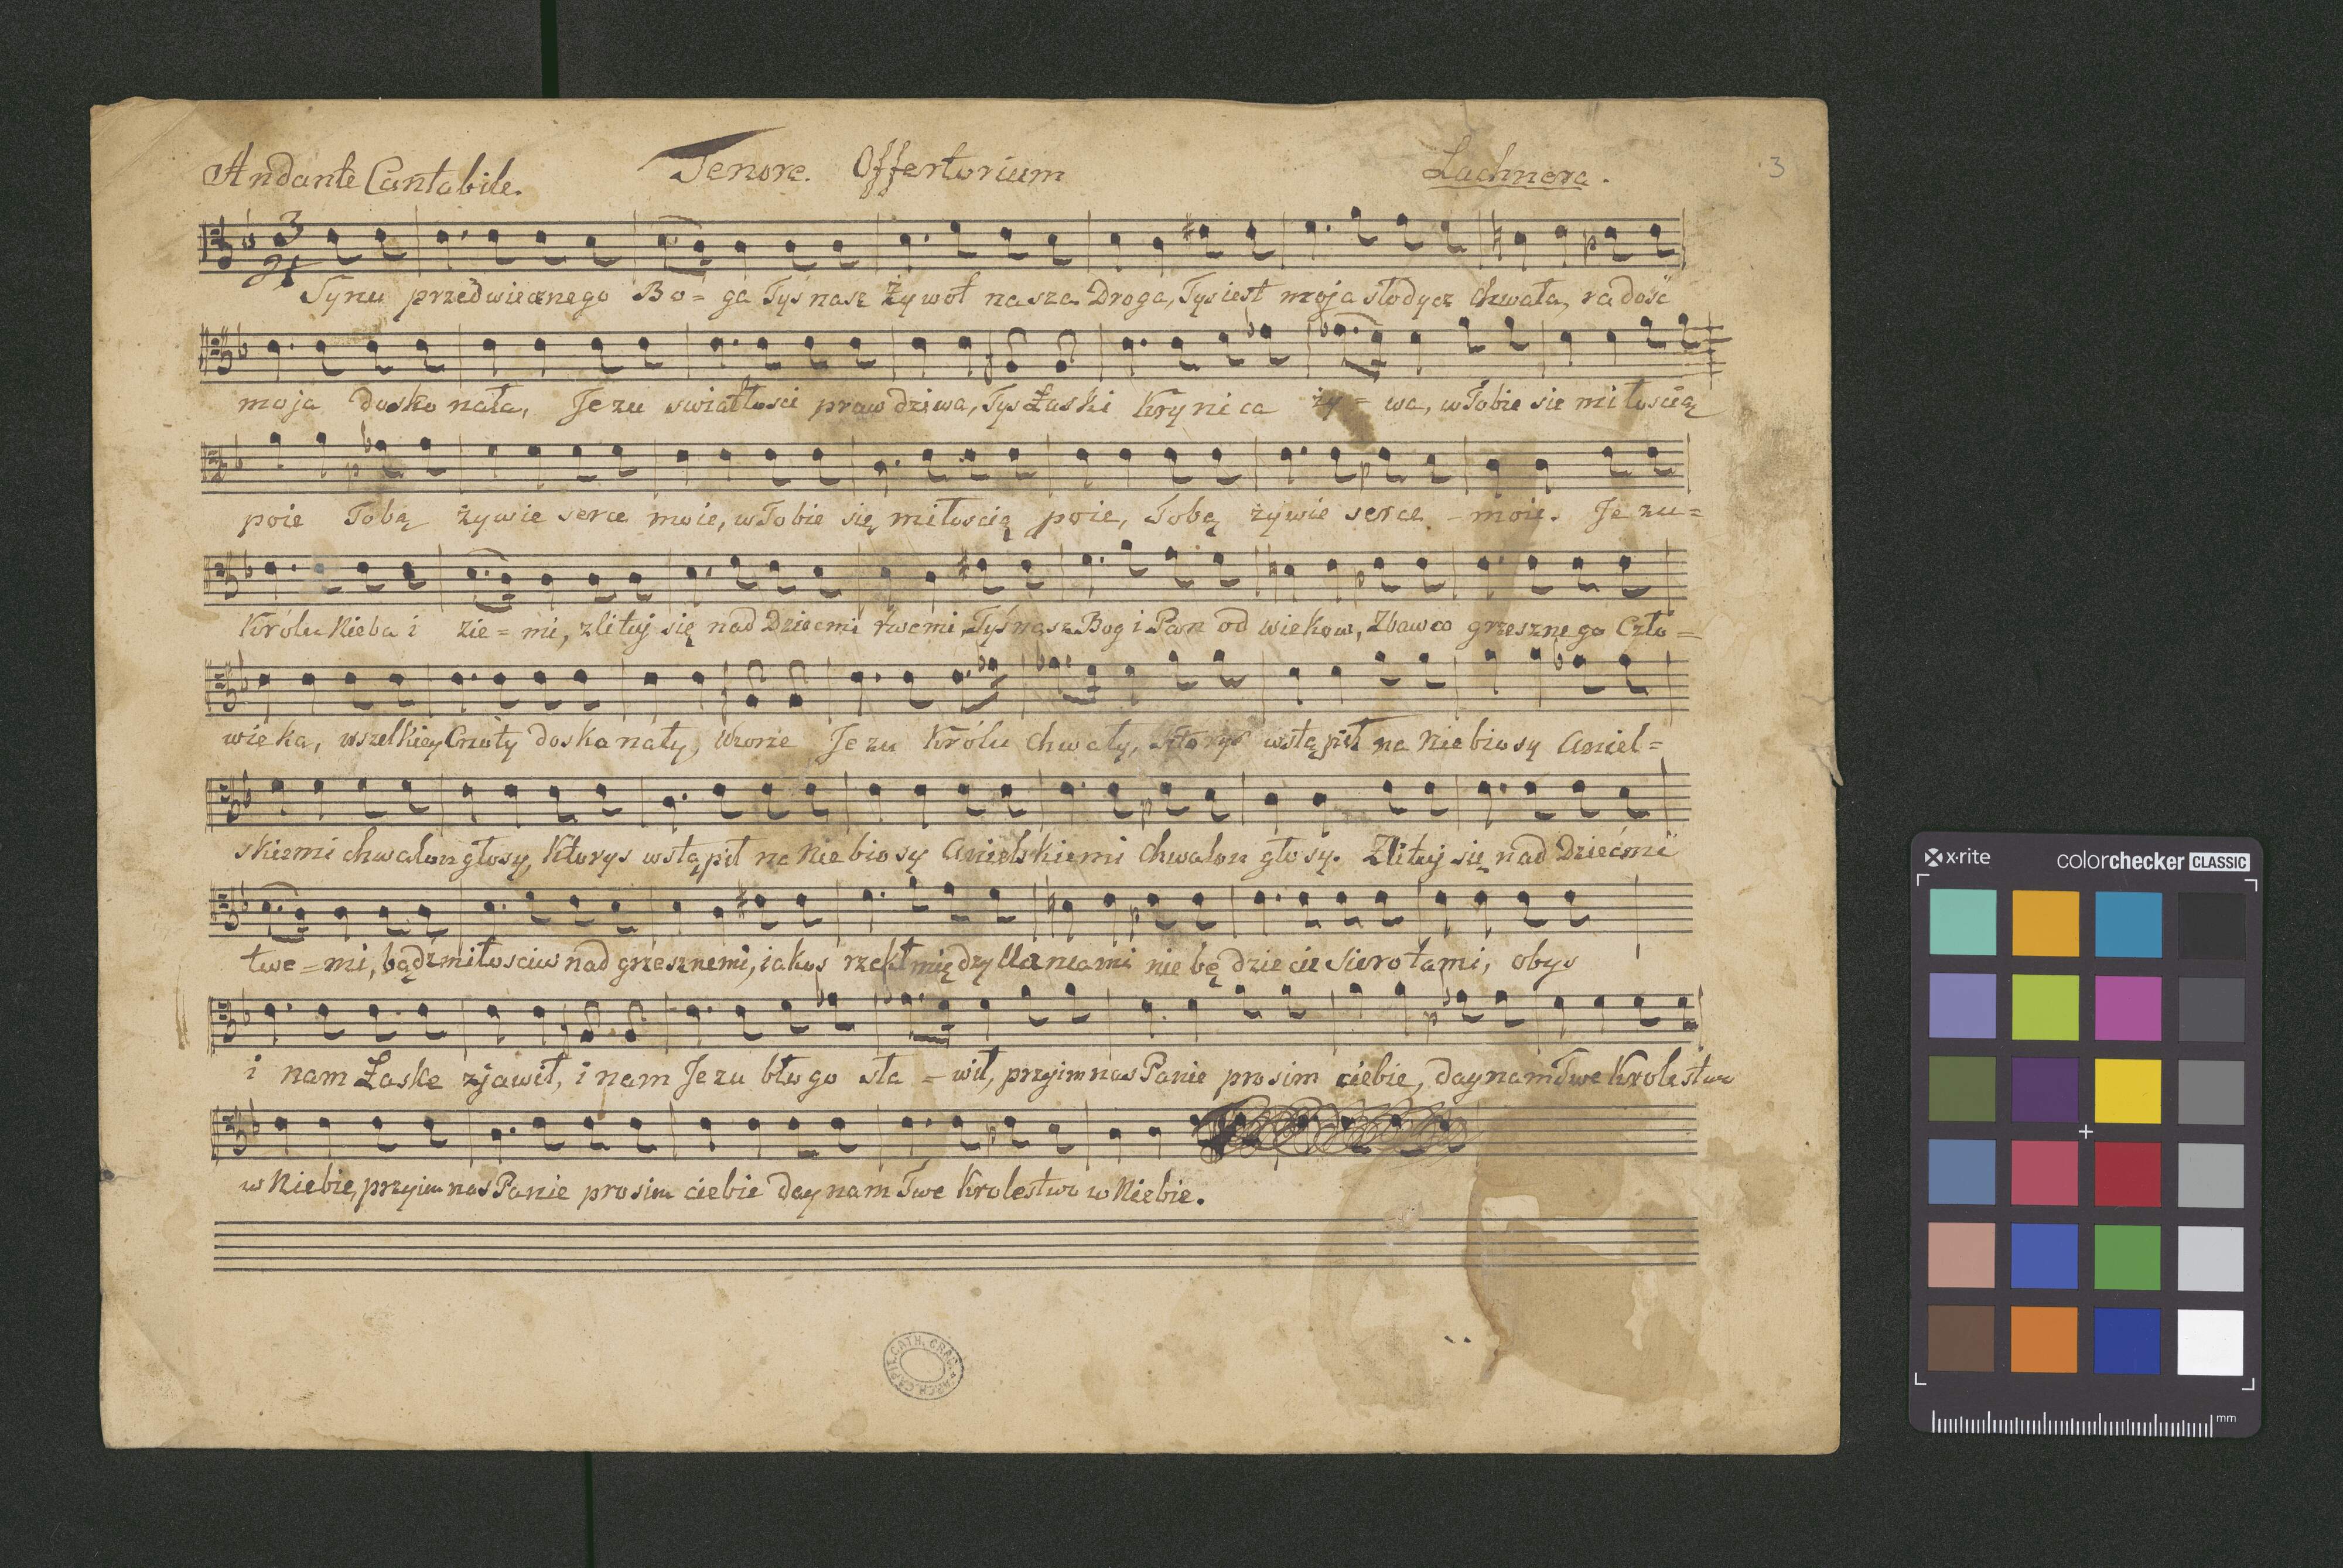 Andante Cantabile. Tenore. Offertorium Lachnera. 3
3/4
Synu przedwiecznego Bo=ga Tyś nasz Żywot nasza Droga, Tyś iest moja słodycz chwała, radość
moja dosko nała, Jezu swiatłosci praw dziwa, Tyś Łaski Krynica ży=wa, w Tobie sie miłoscią
poie Tobą żywie serce moie, w Tobie się miłoscią poie, Tobą żywie serce - moie. Jezu=
Królu Nieba i zie=mi, zlituj się nad Dziecmi twemi, Tyś nasz Bog i Pan od wiekow, Zbawco grzesznego Czło=
wieka, wszelkiey Cnoty doskonały, Wzorze Jezu Królu chwały, Któryś wstąpił na Niebiosy Aniel=
skiemi chwalon głosy, Ktorys wstąpił na Niebiosy Anielskiemi chwalon głosy. Zlituj się nad Dziećmi
twe=mi, bądź miłosciw nad grzesznemi, iakos rzekł między Uczniami nie będziecie Sierotami, obys
i nam Łaske zjawił, i nam Jezu błogo sła=wił, przyim nas Panie prosim ciebie, day nam Twe Krolestwo
w Niebie, przyim nas Panie prosim ciebie day nam Twe Krolestwo w Niebie.
ARCH. CAPIT. CATH. CRAC.
x·rite colorchecker CLASSIC
mm